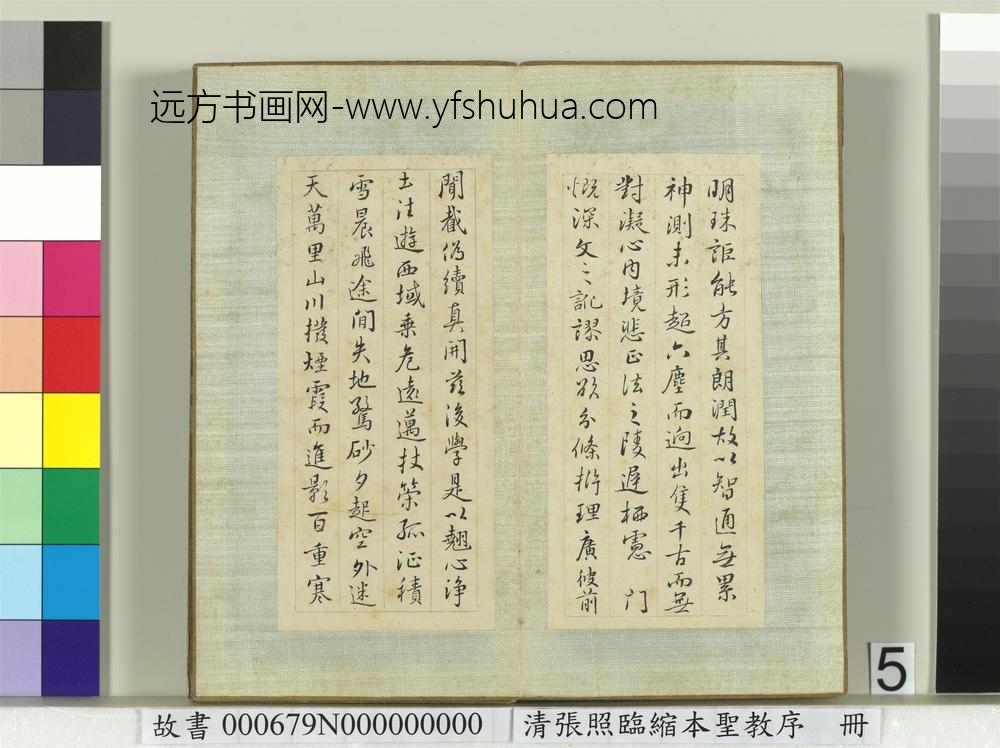 远方书画网-www.yfshuhua.com
明珠詎能方其朗潤故以智通無累
神測未形超六塵而迥出隻千古而無
對凝心內境悲正法之陵遲栖慮 门
慨深文之訛謬思欲分條㭊理廣彼前
聞截偽續真開茲後學是以翹心淨
土注遊西域乗危遠邁杖策孤征積
雪晨飛途閒失地驚砂夕起空外迷
天萬里山川撥煙霞而進影百重寒
5
故書 000679N000000000 清張照臨縮本聖教序 冊